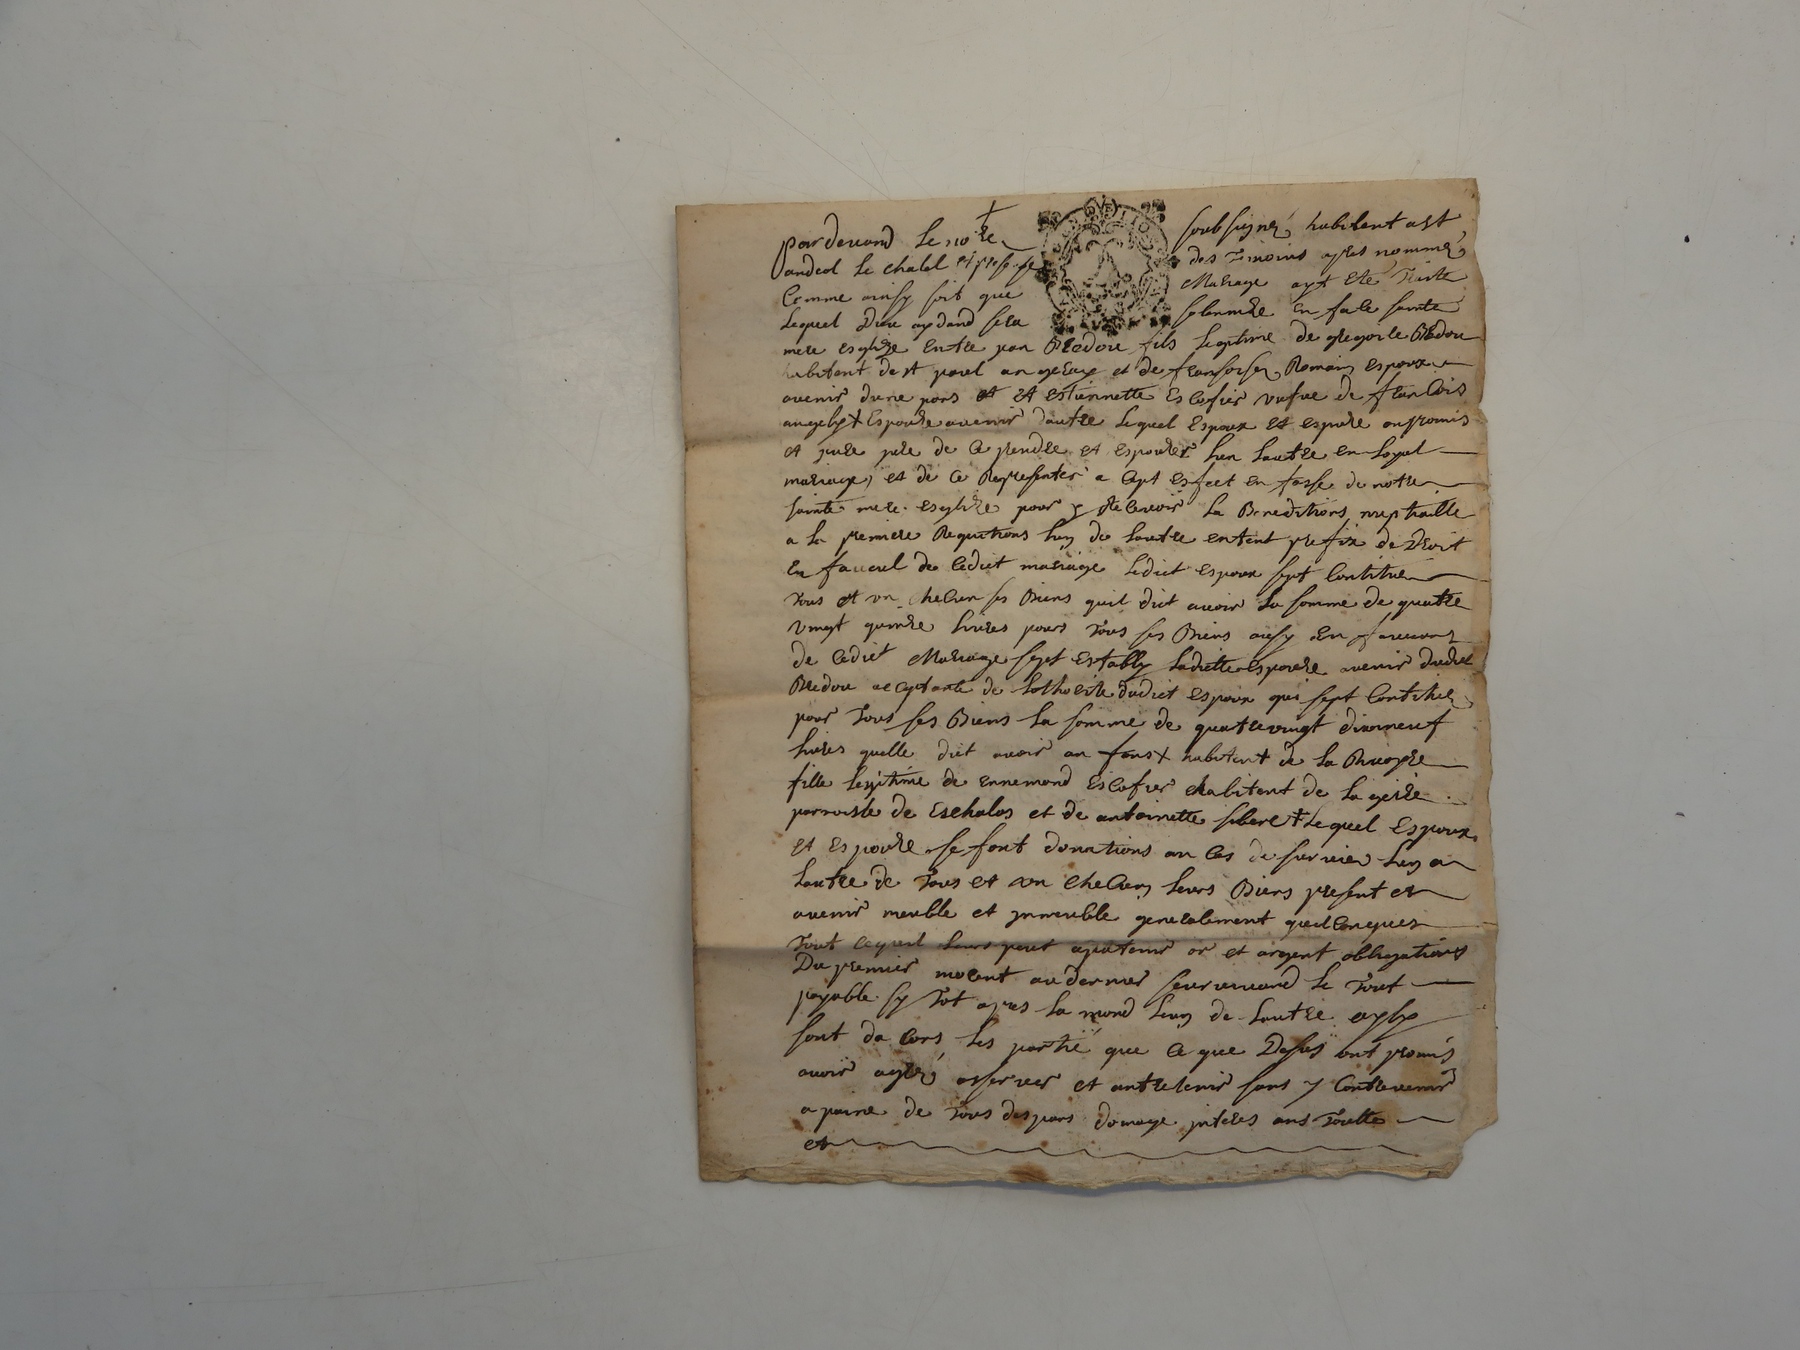 par devand le no re soubsigne habitent a st
andeol le chatel et presence des temoins apres nomme
Comme ainsy soit que Mariage ayt ete Traite
Lequel Dieu aydand sera solennize en face sainte
mere esglize Entre jean Bredou fils legitime de gregoire Bredou
habitent de st paul an et de fransoise Romain espoux
avenir dune pars et estiennette Escofier vefve de francois
Espouze avenir dautre Lequel Espoux et espouze on promis
et jure de ce prendre et espouzer lun lautre en loyal
mariage et de ce Representer a cept esfect en fasse de notre
sainte mere esglize pour y Recevoir La Beneditions nuptialle
a la premiere Requitions lun de lautre entent prefix de Droit
En faveul de cedict mariage ledict espoux sept Contitue
Tous et un chacun ses Biens quil dict avoir la somme de quatre
vingt quinze livres pour Tous ses Biens ausy En faveur
de cedict Mariage sept establÿ ladicte espouze avenir dudict
Bredou aceptante de lothorite dudict espoux qui sept Contitue
pour Tous ses Biens la somme de quatrevingt dixneuf
livres quelle dict avoir an habitent de la
fille legitime de ennemond Escofier habitent de la
parroisse de Eschalas et de antoinette Lequel Espoux
et espouze se font donations an cas de survie lun a
lautre de Tous et un chacun leurs Biens present et
avenir meuble et immeuble generalement quelconques
Tout cequil leurs peut apartenir or et argent obligations
Du premier morent au dernier survivand le Tout
payable sy Tot apres la mord lun de lautre
sont da cors les partie que ce que Desus ont promis
avoir agre observer et antretenir sans y Contrevenir
a paine de Tous despans domage interes ans Toutte
et